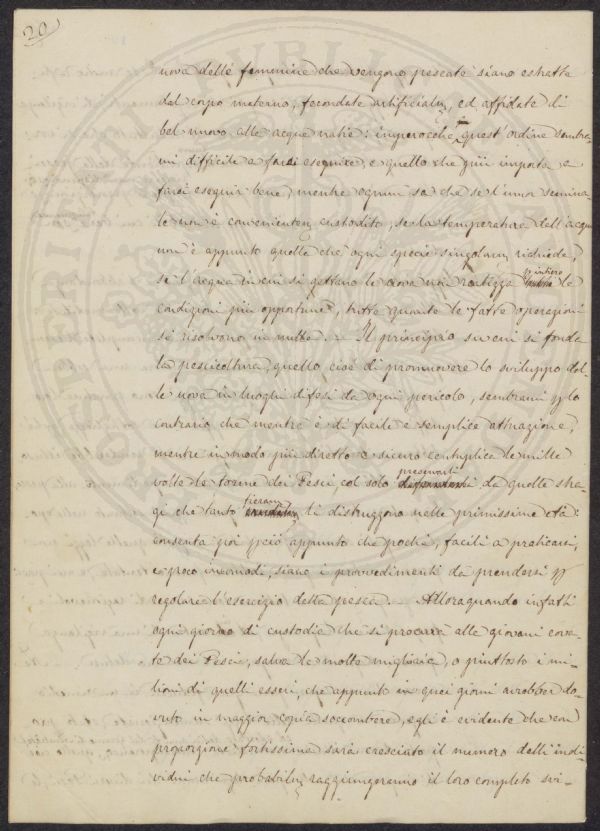 20
uova delle femmine che vengono pescate siano estratte
dal corpo materno, fecondate artificialm, ed affidate di
bel nuovo alle acque natie: imperocchè quest'ordine sembra-
mi difficile a farsi eseguire, e quello che più importa a
farsi eseguir bene, mentre ognun sa che se l'umor semina-
le non è convenientem custodito, se la temperatura dell'acqua
non è appunto quella che ogni specie singolarm richiede,
se l'acqua in cui si gettano le uova non realizza p intiero le
condizioni più opportune, tutte quante le fatte operazioni
si risolvono in nulla. - Il principio su cui si fonda
la pescicoltura, quello cioè di promuovere lo sviluppo del-
le uova in luoghi difesi da ogni pericolo, sembrami p lo
contrario che mentre è di facile e semplice attuazione,
mentre in modo più diretto e sicuro centuplica le mille
volte le torme dei Pesci, col solo preservarli da quelle stra-
gi che tanto fieram li distruggono nelle primissime età:
consenta poi p ciò appunto che pochi, facili a praticarsi,
e poco incomodi, siano i provvedimenti da prendersi p
regolare l'esercizio della pesca. - Alloraquando infatti
ogni giorno di custodia che si procura alle giovani cova-
te dei Pesci, salva le molte migliaia, o piuttosto i mi-
lioni di quelli esseri, che appunto in quei giorni avrebber do-
vuto in maggior copia soccombere, egli è evidente che con
proporzione fortissima sarà cresciuto il numero delli indi-
vidui che probabilm raggiungeranno il loro completo svi-